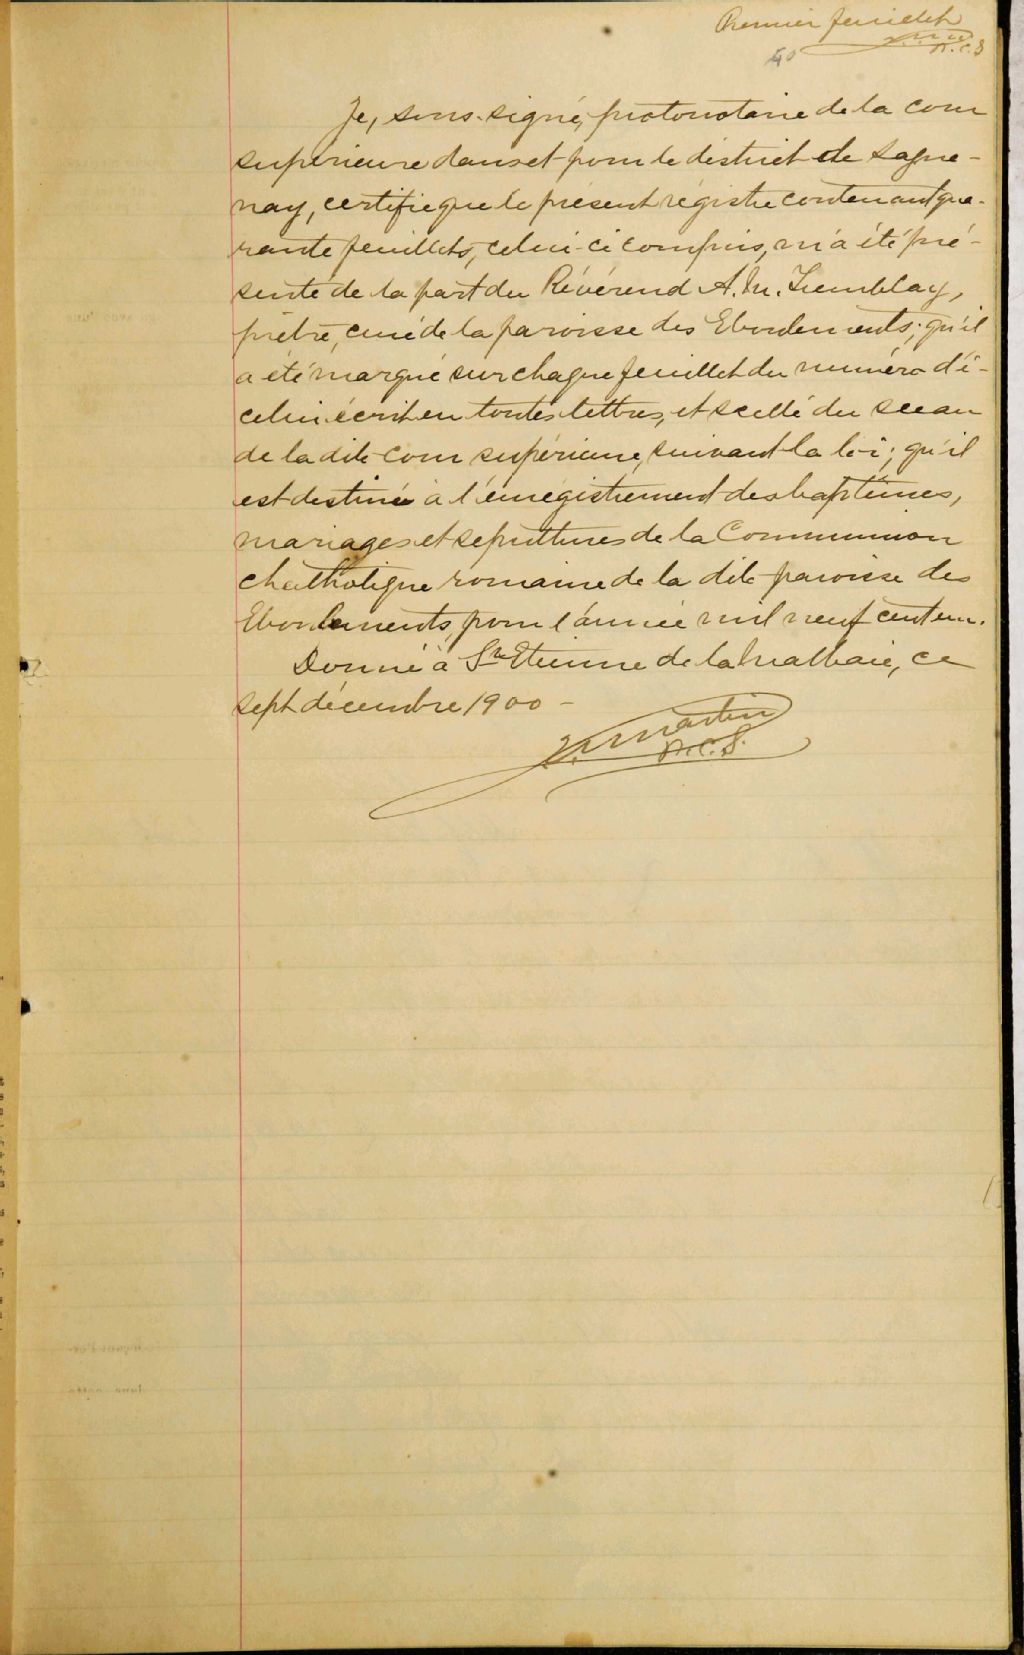 Premier feuillet
40
P.C.S
Je, sous-signé, protonotaire de la cour
supérieure dans et pour le district de Sague-
nay, certifie que le présent régistre contenant qua-
rante feuillets, celui-ci compris, m'a été pré-
senté de la part du Révérend A. M. Tremblay,
prêtre, curé de la paroisse des Eboulements; qu'il
a été marqué sur chaque feuillet du numéro d'i-
celui écrit en toutes lettres, et scellé du sceau
de la dite cour supérieure, suivant la loi; qu'il
est destiné à l'enrégistrement des baptêmes,
mariages et sepultures de la Communion
chatholique romaine de la dite paroisse des
Eboulements, pour l'année mil neuf cent un.
Donné à St Etienne de la Malbaie, ce
sept décembre 1900 -
Martin
P.C.S.